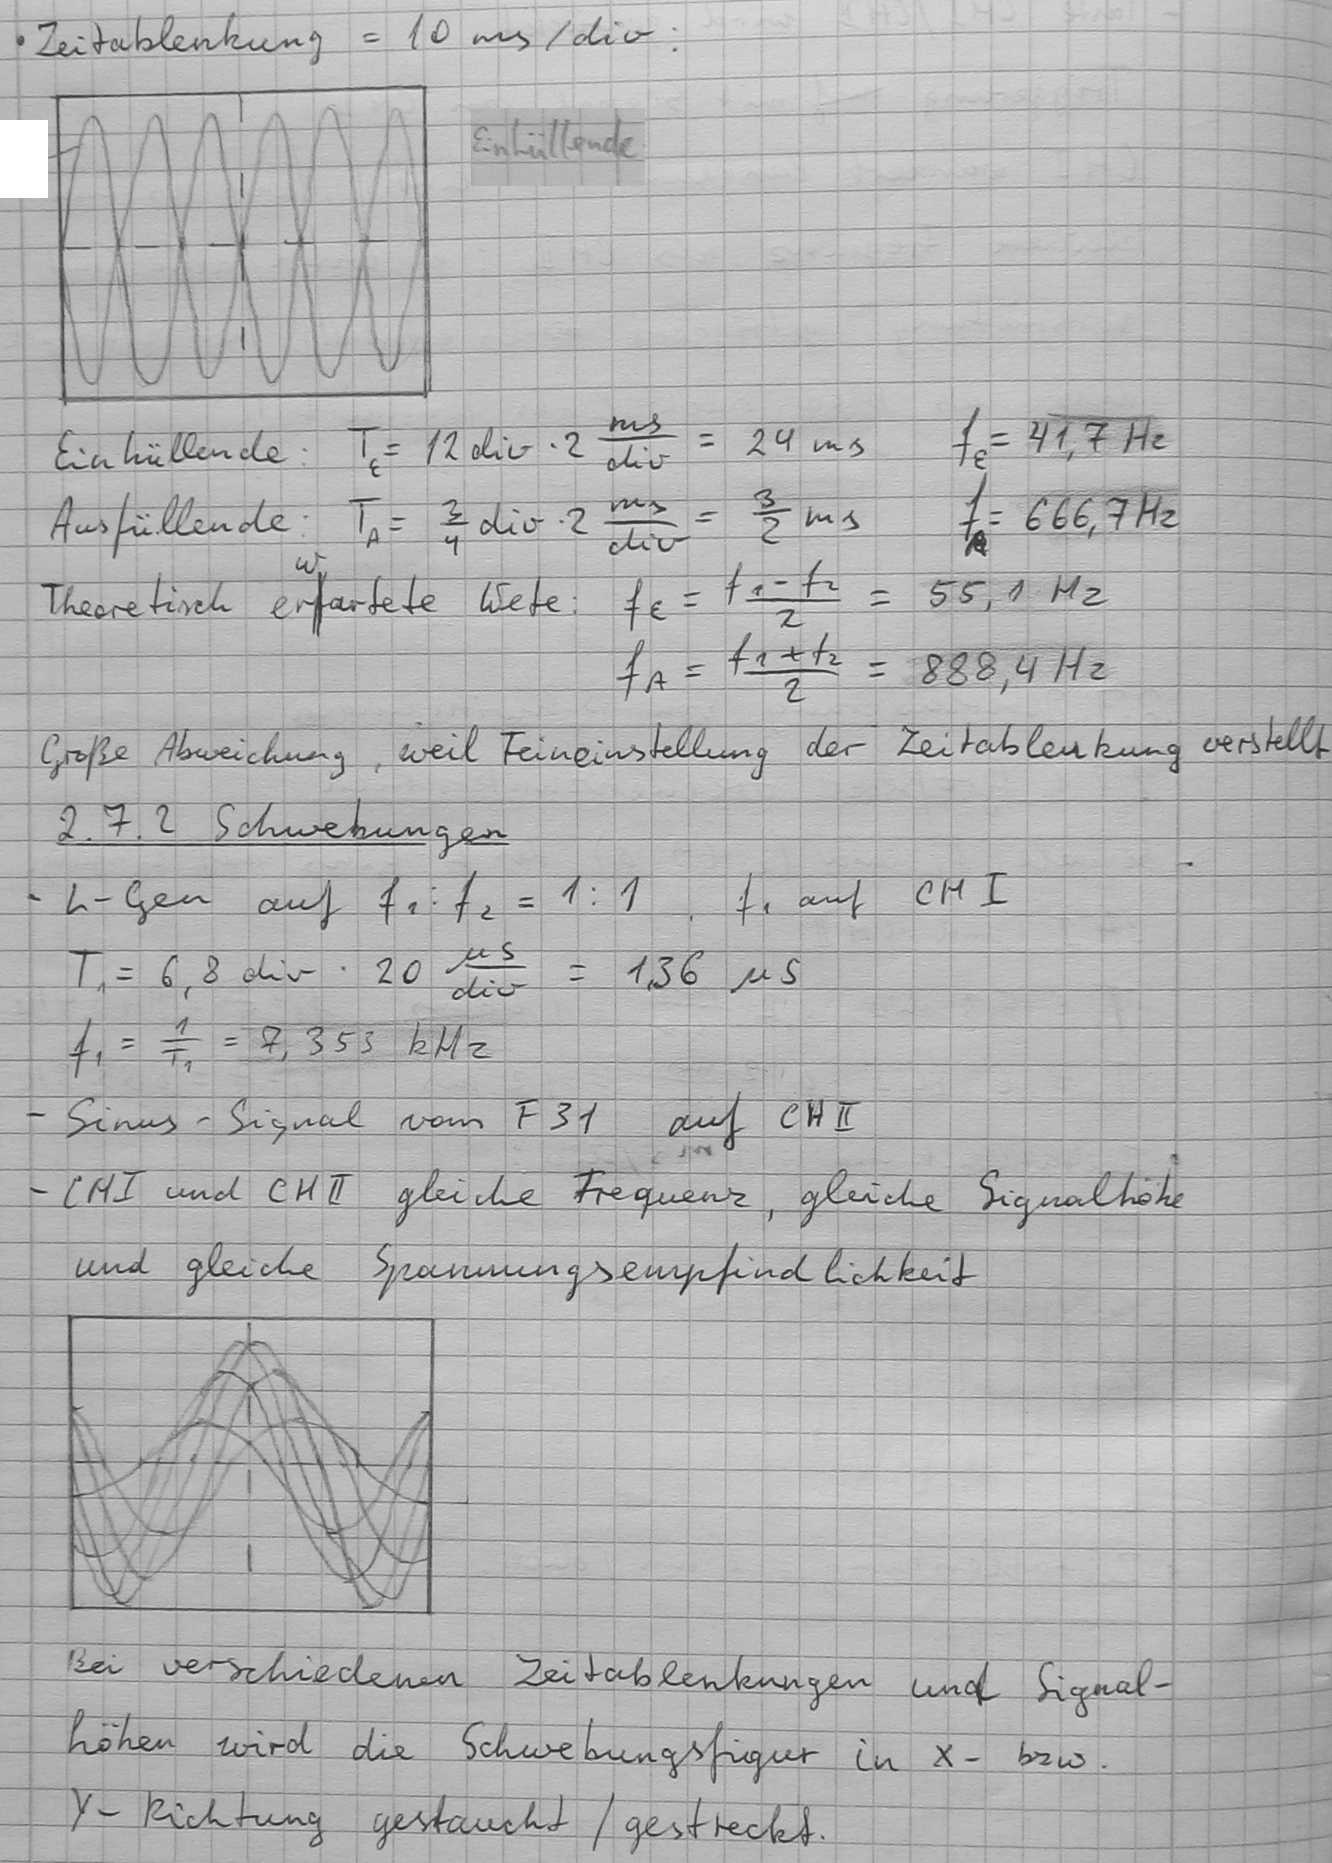 • Zeitablenkung = 10 ms/div:
Einhüllende
Einhüllende: T_E = 12 div · 2 ms/div = 24 ms f_E = 41,7 Hz
Ausfüllende: T_A = 3/4 div · 2 ms/div = 3/2 ms f_A = 666,7 Hz
w
Theoretisch erfartete Wete: f_E = (f_1 - f_2)/2 = 55,1 Hz
f_A = (f_1 + f_2)/2 = 888,4 Hz
Große Abweichung, weil Feineinstellung der Zeitablenkung verstellt
2.7.2 Schwebungen
- L-Gen auf f_1 : f_2 = 1 : 1, f_1 auf CH I
T_1 = 6,8 div · 20 µs/div = 1,36 µs
f_1 = 1/T_1 = 7,353 kHz
- Sinus-Signal vom F31 auf CH II
- CH I und CH II gleiche Frequenz, gleiche Signalhöhe
und gleiche Spannungsempfindlichkeit
Bei verschiedenen Zeitablenkungen und Signal-
höhen wird die Schwebungsfigur in X- bzw.
Y-Richtung gestaucht/gestreckt.